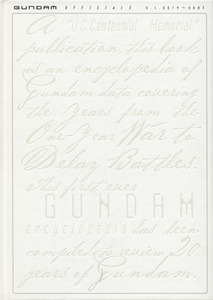 GUNDAM OFFICIALS U.C.0079-0083
A "U.C. Centennial Memorial"
publication, this book
is an encyclopedia of
Gundam data covering
the Years from the
One-Year War to
Delaz Battles.
This first ever
GUNDAM
encyclopedia has been
compiled to review 20
years of Gundam.